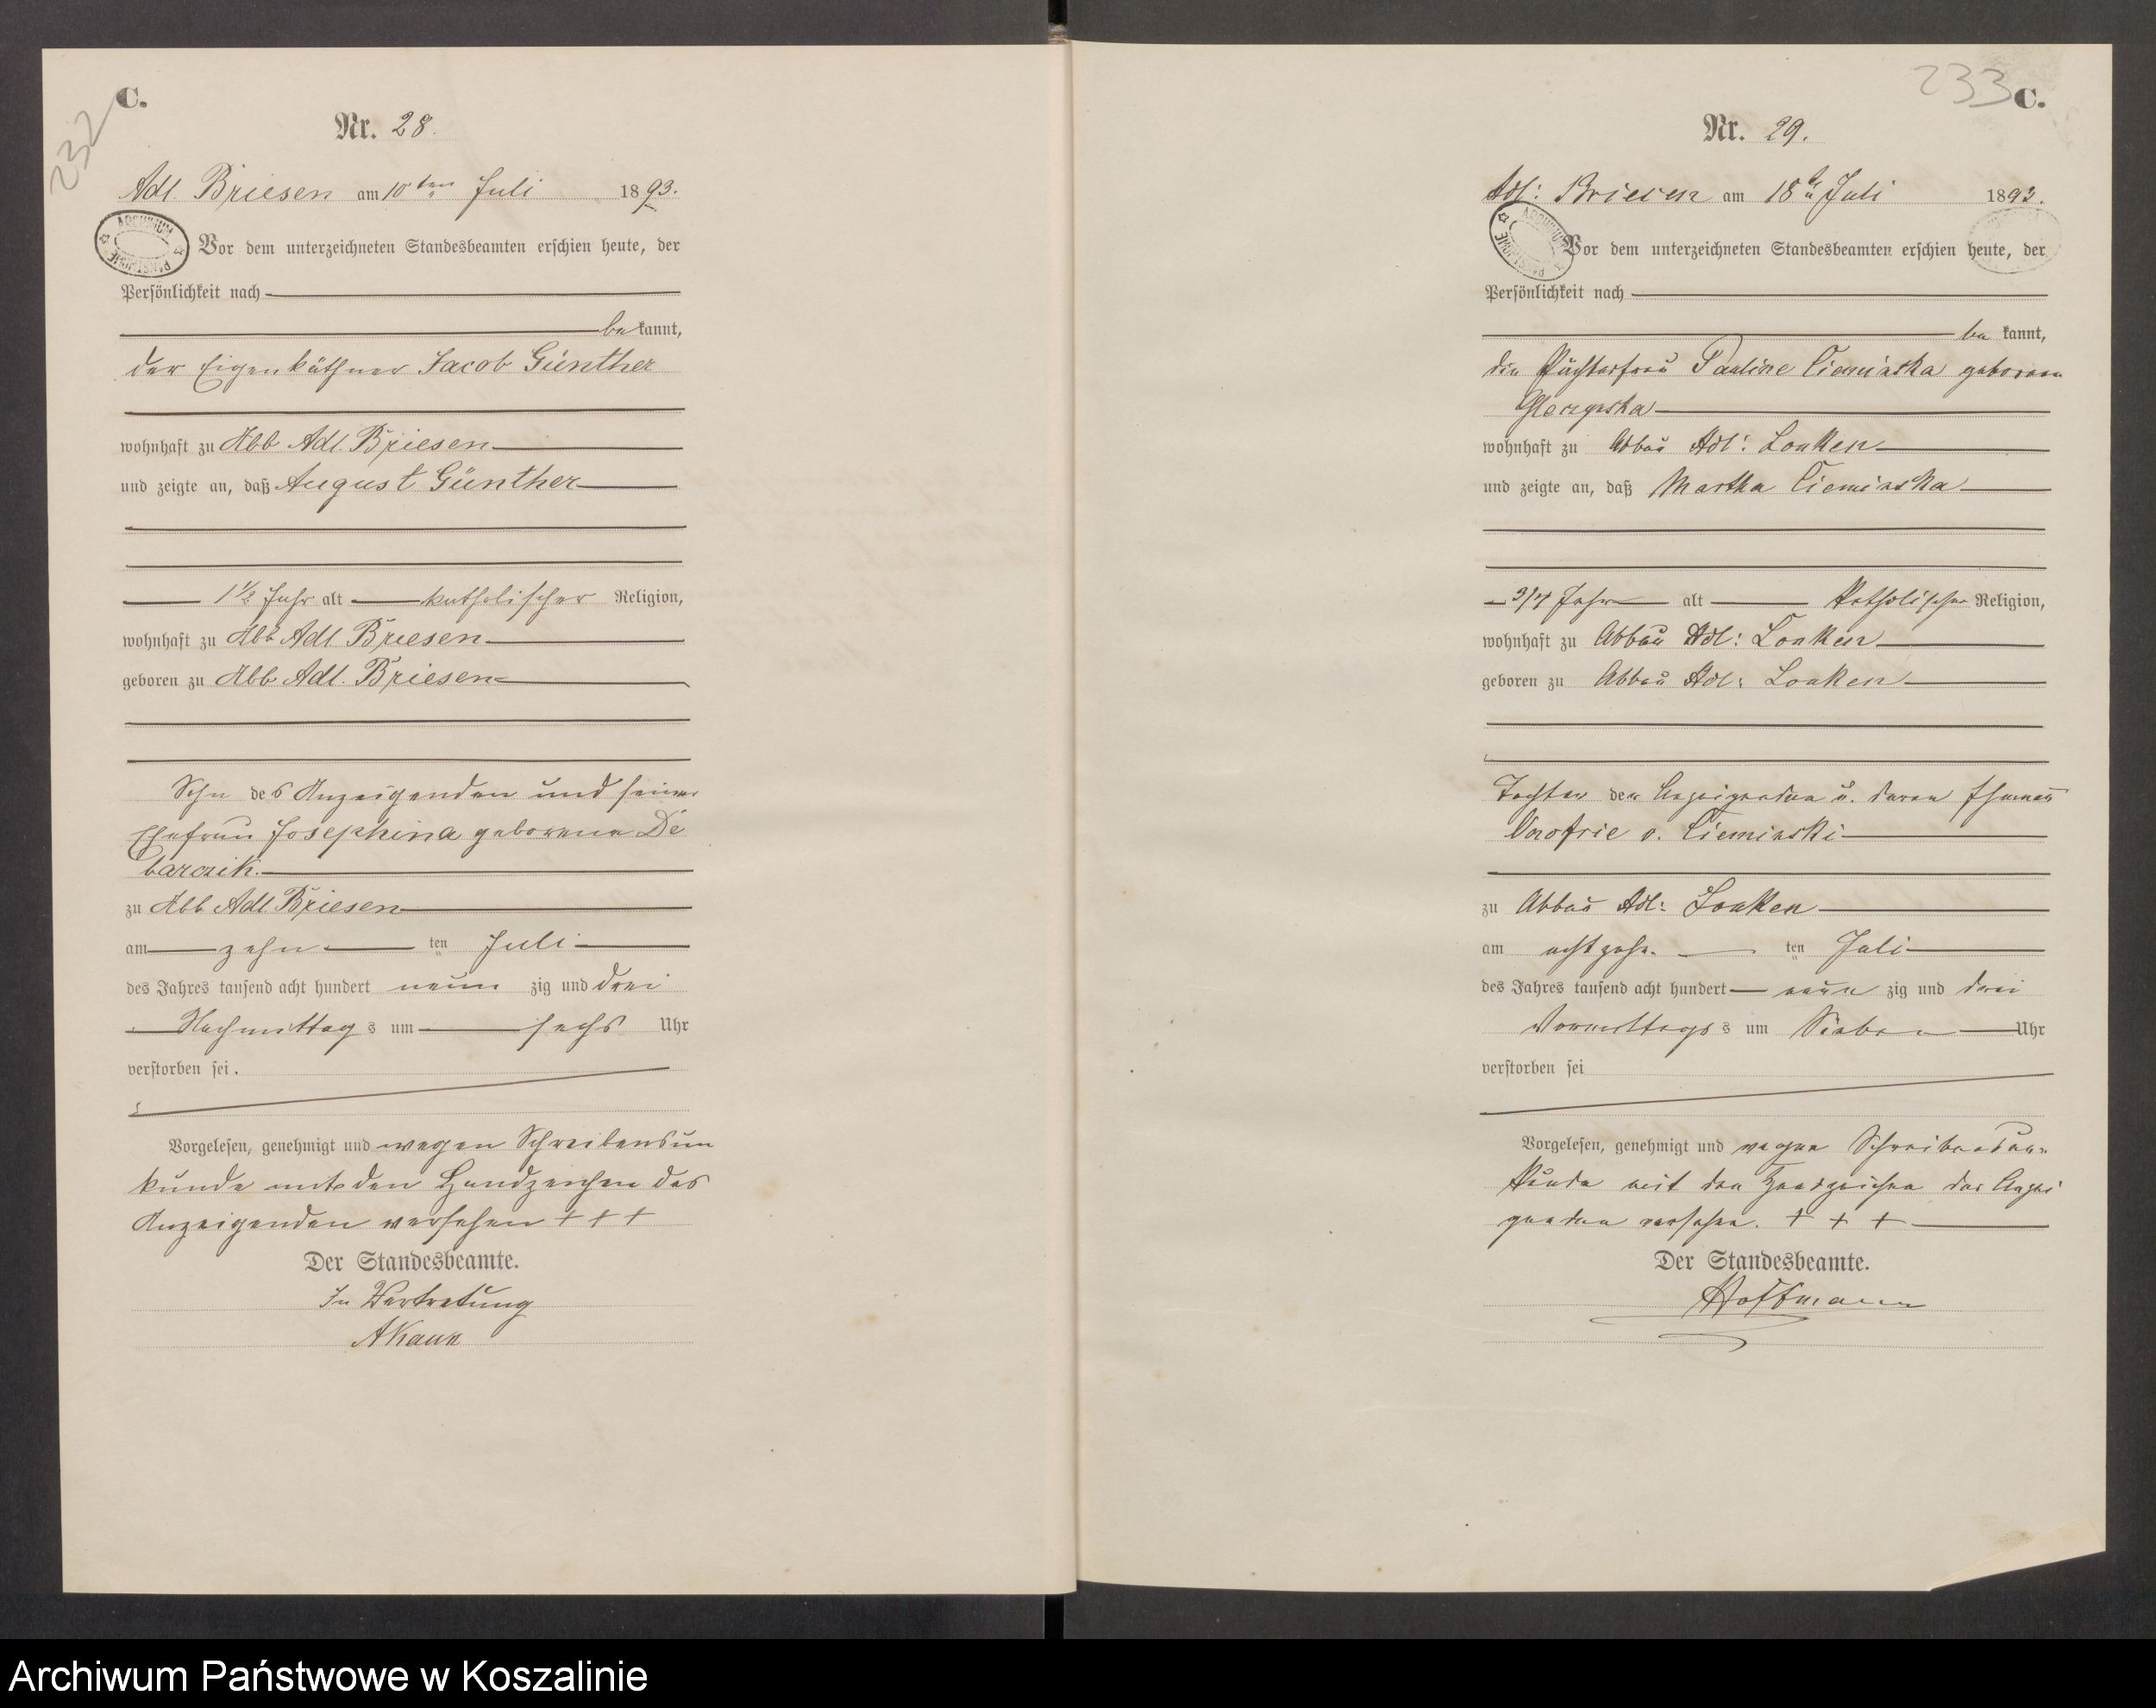 232
C.
Nr. 28.
Adl. Briesen am 10ten Juli 1893.
Vor dem unterzeichneten Standesbeamten erschien heute, der
Persönlichkeit nach
bekannt,
der Eigenkäthner Jacob Günther
wohnhaft zu Abb Adl. Briesen
und zeigte an, daß August Günther
1 1/2 Jahr alt katholischer Religion,
wohnhaft zu Abb Adl. Briesen
geboren zu Abb Adl. Briesen
Sohn des Anzeigenden und seiner
Ehefrau Josephina geborene De
barczik.
zu Abb Adl. Briesen
am zehn ten Juli
des Jahres tausend acht hundert neun zig und drei
Nachmittags um sechs Uhr
verstorben sei.
Vorgelesen, genehmigt und wegen Schreibensun
kunde mit den Handzeichen des
Anzeigenden versehen + + +
Der Standesbeamte.
In Vertretung
233
C.
Nr. 29.
Adl: Briesen am 18t Juli 1893.
Vor dem unterzeichneten Standesbeamten erschien heute, der
Persönlichkeit nach
bekannt,
die Pächterfrau Pauline Cieminska geborene
wohnhaft zu Abbau Adl: Lonken
und zeigte an, daß Martha Cieminska
3/4 Jahr alt katholischer Religion,
wohnhaft zu Abbau Adl: Lonken
geboren zu Abbau Adl: Lonken
Tochter der Anzeigenden u. deren Ehemann
Onofrie v. Cieminski
zu Abbau Adl: Lonken
am achtzehn ten Juli
des Jahres tausend acht hundert neun zig und drei
Vormittags s um Sieben Uhr
verstorben sei
Vorgelesen, genehmigt und wegen Schreibensun-
kunde mit den Handzeichen der Anzei
genden versehen. + + +
Der Standesbeamte.
Hoffmann
Archiwum Państwowe w Koszalinie